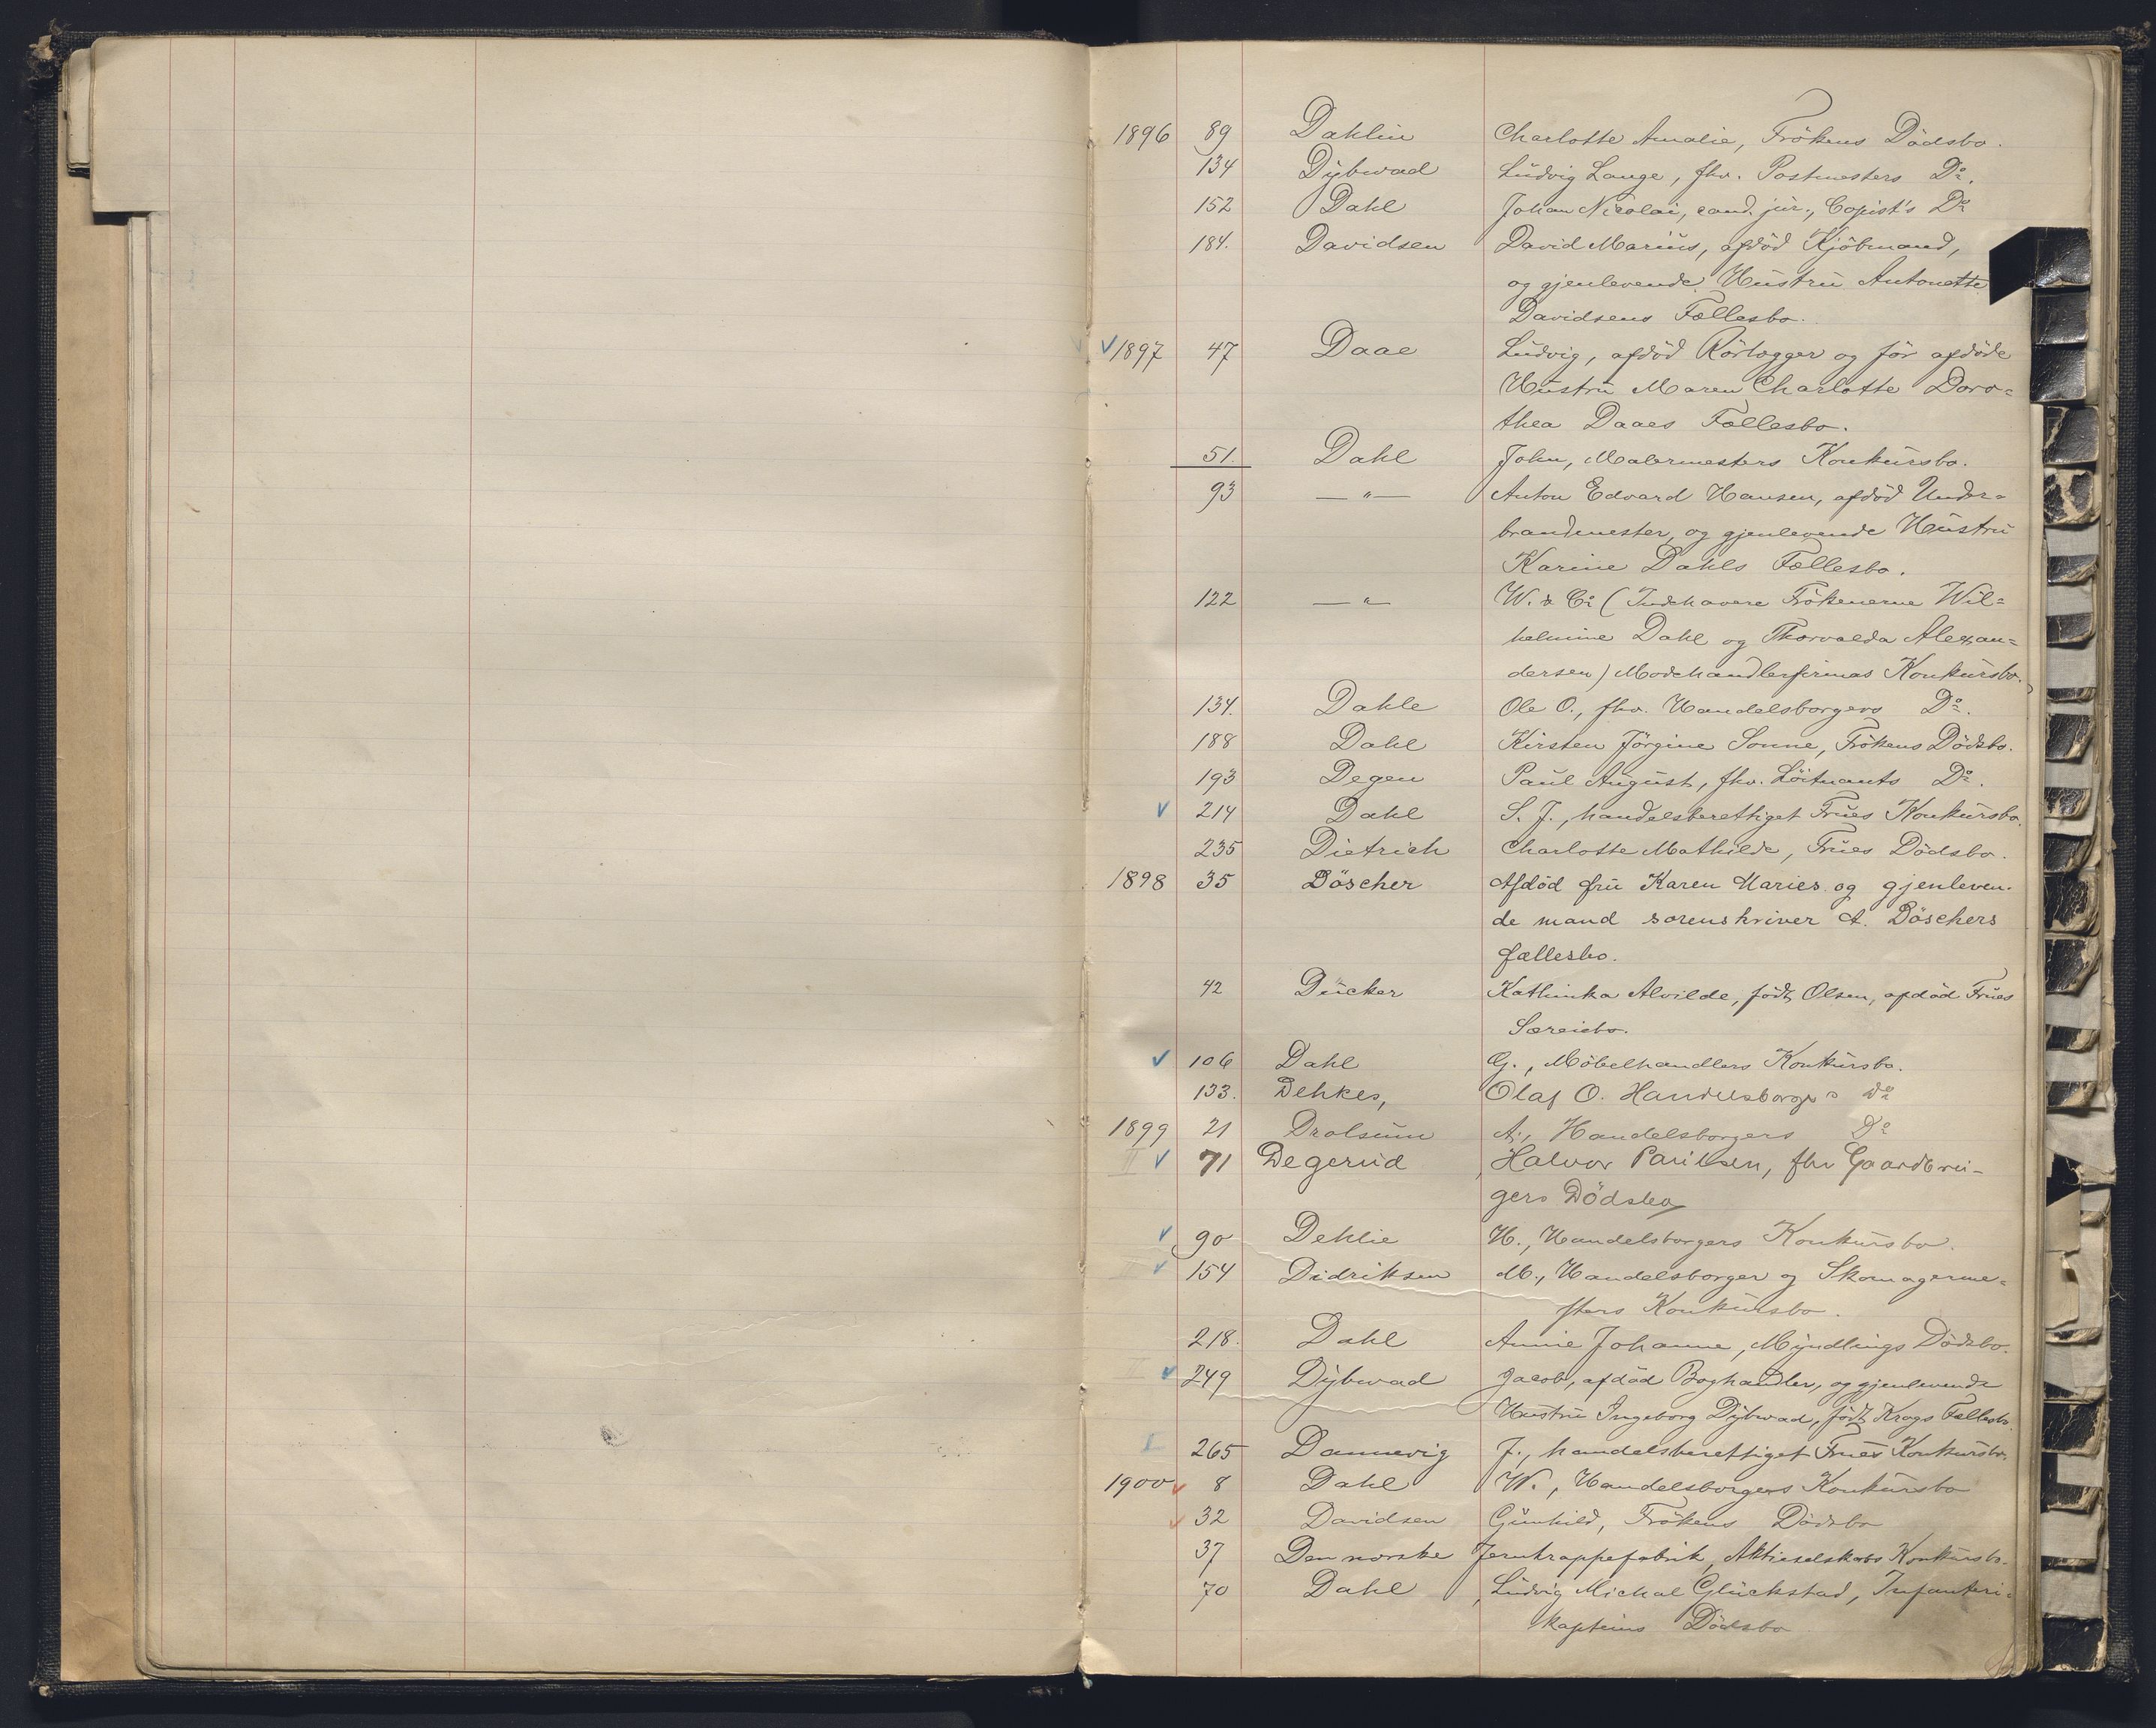 1896 89 Dahlin Charlotte Amalie, Frökens Dödsbo.
134 Dybwad Ludvig Lange, fhv. Postmesters Do.
152 Dahl Johan Nicolai, cand. jur., Copist's Do
184. Davidsen David Marius, afdöd Kjöbmand,
og gjenlevende Hustru Antonette
Davidsens Fællesbo.
1897 47 Daae Ludvig, afdöd Rörlægger og för afdöde
Hustru Maren Charlotte Doro=
thea Daaes Fællesbo.
51. Dahl John, Malermesters Konkursbo.
93 — " — Anton Edvard Hansen, afdöd Under=
brandmester, og gjenlevende Hustru
Karine Dahls Fællesbo.
122 — " — W. & Co (Indehavere Frökenerne Wil=
helmine Dahl og Thorvalda Alexan=
dersen) Modehandlerfirmas Konkursbo.
134. Dahle Ole O., fhv. Handelsborgers Do.
188 Dahl Kirsten Jörgine Sonne, Frökens Dödsbo.
193 Degen Paul August, fhv. Löitnants Do.
214 Dahl S. J., handelsberettiget Frues Konkursbo.
235 Dietrich Charlotte Mathilde, Frues Dödsbo.
1898 35 Döscher Afdöd fru Karen Maries og gjenleven-
de mand sorenskriver A. Döschers
fællesbo.
42 Dücker Kathinka Alvilde, födt Olsen, afdöd Frues
Særeiebo.
106 Dahl G., Möbelhandlers Konkursbo.
133. Dehkes, Olaf O. Handelsborgers do
1899 21 Drolsum A., Handelsborgers Do
71 Degerud Halvor Paulsen, fhv Gaardbru-
gers Dödsbo
90 Dehlie H., Handelsborgers Konkursbo.
154 Didriksen M., Handelsborger og Skomagerme=
sters Konkursbo.
218. Dahl Annie Johanne, Myndlings Dödsbo.
249 Dybwad Jacob, afdöd Boghandler, og gjenlevende
Hustru Ingeborg Dybwad, födt Krogs Fællesbo
265 Dannevig J., handelsberettiget Frues Konkursbo.
1900 8 Dahl W., Handelsborgers Konkursbo
32 Davidsen Gunhild, Frökens Dödsbo
37 Den norske Jerntrappefabrik, Aktieselskabs Konkursbo.
70 Dahl Ludvig Michal Glückstad, Infanteri-
kapteins Dödsbo